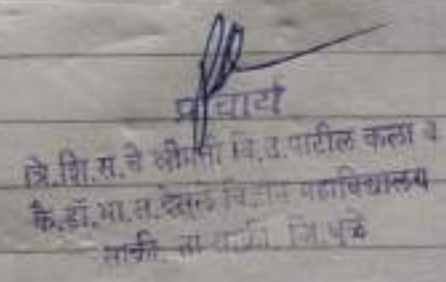 प्राचार्य
वि.शि.स.चे श्रीमती वि.उ.पाटील कला व
कै.डॉ.भा.ल.देसले विज्ञान महाविद्यालय
साक्री, ता.साक्री, जि.धुळे